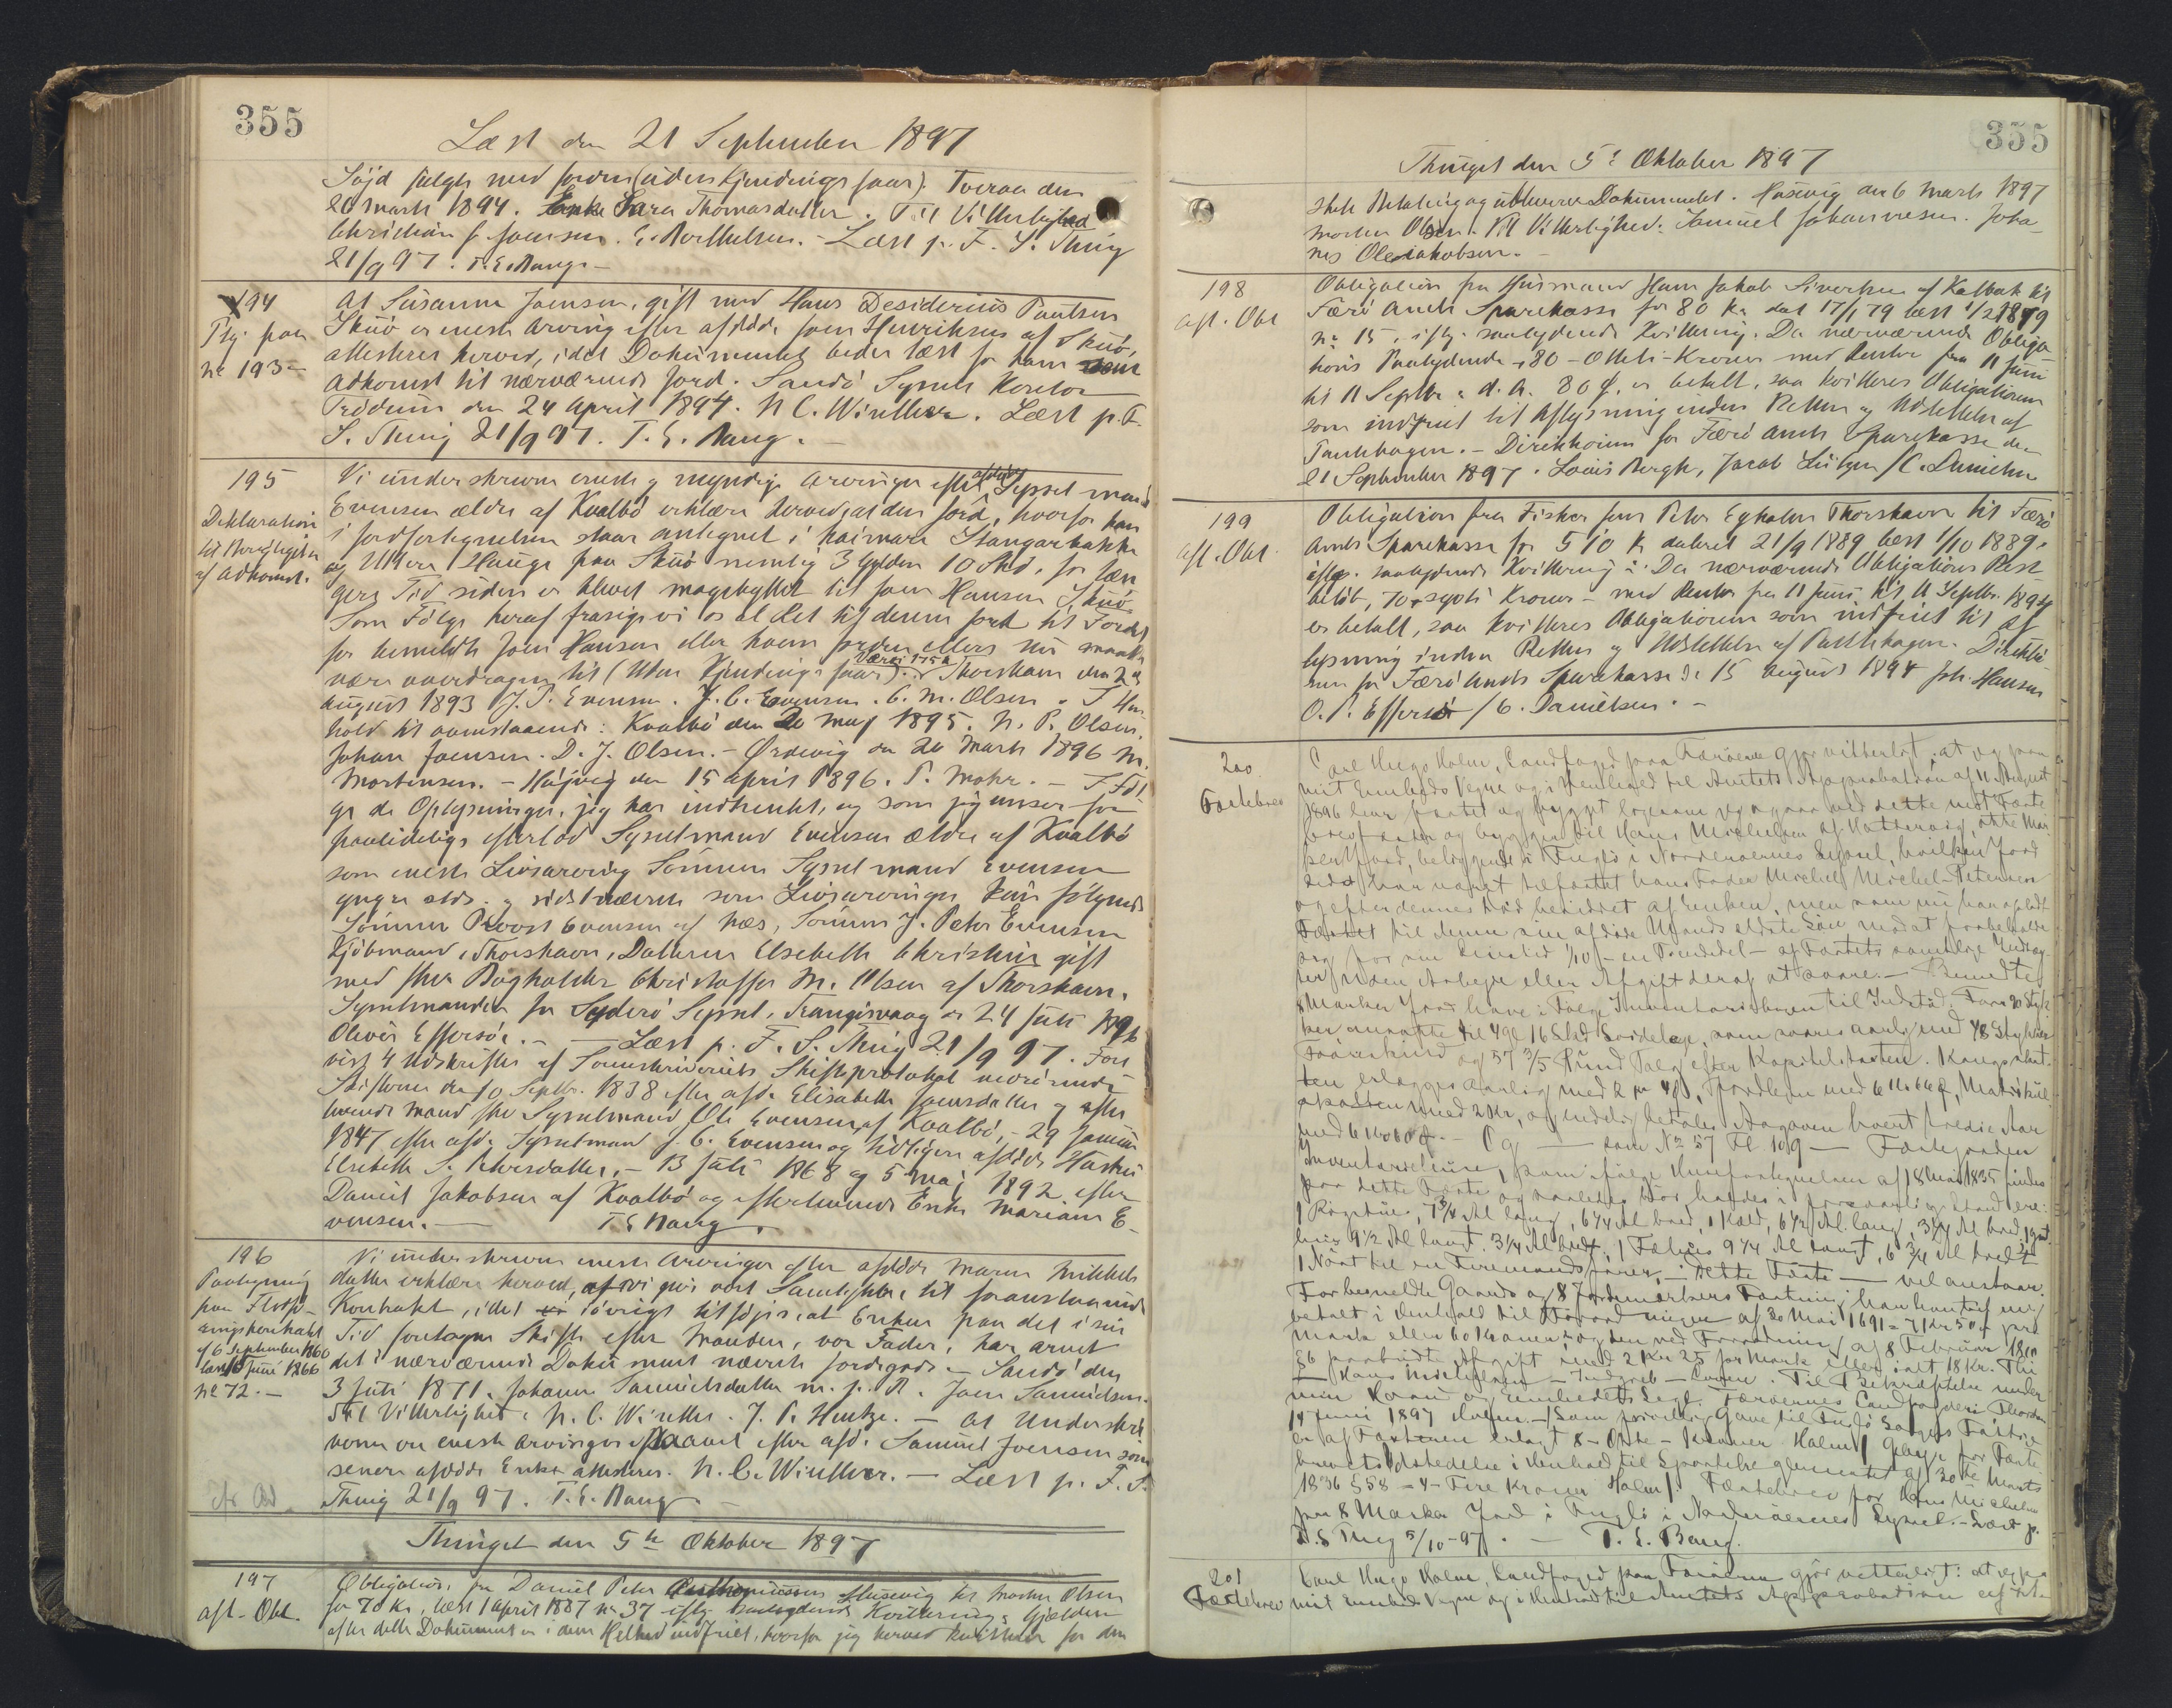 355
Læst den 21 September 1897
Søjd følger med Jorden (uden Kjendings faar). Tveraa den
20 marts 1894. Enke Sara Thomasdatter. Til Vitterlighed
Christian J. Joensen. E. Berthelsen. - Læst p. F. S. Thing
21/9 97. T. E. Bang. -
194
Paa
no 193 -
At Susanna Joensen, gift med Hans Desiderius Poulsen
Skuø er eneste Arving efter afdøde Joen Henriksen af Skuø,
attesteres herved, idet Dokumentet bedes læst for ham som
Adkomst til nærværende Jord. Sandø Syssels Kontor
Trødum den 24 April 1894. N C. Winther. Læst p. F.
S. Thing 21/9 97. T. E. Bang. -
195
Deklaration
til Berigtigelse
af Adkomst.
Vi underskrevne eneste og myndige Arvinger efter afdøde Syssel mand
Evensen ældre af Kvalbø erklære herved, at den Jord, hvorfor han
i Jordfortegnelsen staar antegnet i Stangarbakke
og Uttere Hauge paa Skuø nemlig 3 Gylden 10 Skd. for læn
gere Tid siden er blevet magebyttet til Joen Hansen Skuø.
Som Følge heraf frasige vi os al Ret til denne Jord til Fordel
for bemeldte Joen Hansen eller hvem Jorden ellers nu maatte
være overdragen til (uden Kjendings faar). Thorshavn den 29
August 1893 J. P. Evensen. J. C. Evensen. C. M. Olsen. I Hen
hold til ovenstaaende: Kvalbø den 20 Maj 1895. N. P. Olsen.
Johan Joensen. D. J. Olsen. - Ørdevig den 20 Marts 1896 M.
Mortensen. - Højvig den 15 April 1896. P. Mohr. - I Føl
ge de Oplysninger, jeg har indhentet, og som jeg anser for
paalidelige efterlod Sysselmand Evensen ældre af Kvalbø
som eneste Livsarving Sønnen Syssel mand Evensen
yngre og sidstnævnte som Livsarvinger kun følgende
Sønnen Provst Evensen af Næs, Sønnen J. Peter Evensen
Kjøbmand i Thorshavn, Datteren Elsebeth Christine gift
med Hr Bogholder Christoffer M. Olsen af Thorshavn.
Sysselmanden for Syderø Syssel, Trangisvaag d. 24 Juli 1896
Oliver Effersøe. - Læst p. F. S. Thing 21/9 97. Fore
vist 4 Udskrifter af Sorenskriveriets Skifteprotokol vedrørende
Skifterne den 10 Septbr. 1838 efter afd. Elisabeth Joensdatter og efter
levende Mand Hr Sysselmand Ole Evensen af Kvalbø, - 29 Januar
1847 efter afd. Sysselmand J. C. Evensen og tidligere afdøde Hustru
Elsebeth S. Petersdatter, - 13 Juli 1868 og 5 Maj 1892 efter
Daniel Jakobsen af Kvalbø og efterlevende Enke Mariane E-
vensen. - T E Bang.
196
Paategning
paa
kontrakt
af 6 September 1860
læst Juni 1866
no 72. -
Vi underskrevne eneste Arvinger efter afdøde Maren Mikkels
datter erklære herved, at vi give vort Samtykke til foranstaaende
Kontrakt, idet iøvrigt tilføjes, at Enken paa det i sin
Tid foretagne Skifte efter Manden, vor Fader, har arvet
det i nærværende Dokument nævnte Jordegods. Sandø den
3 Juli 1871. Johanne Samuelsdatter m. p. P. Joen Samuelsen.
Til Vitterlighed: N. C. Winther. J. P. Hentze. - At Underskri
verne ere eneste Arvinger efter afd. Samuel Joensen som
senere afdøde Enke attesteres. N. C. Winther. - Læst p. F. S.
Thing 21/9 97. T. E. Bang
Thinget den 5te Oktober 1897
197
afl. Obl.
Obligation, fra Daniel Peter Husevig til Morten Olsen
for 70 Kr, læst 1 April 1887 no 37 iflg. saalydende Kvittering: Gjælden
efter dette Dokument er i dens Helhed indfriet, hvorfor jeg herved kvitterer for den
355
Thinget den 5te Oktober 1897
skete Betaling og udleverer Dokumentet. Husevig den 6 Marts 1897
Morten Olsen. Til Vitterlighed: Samuel Johannesen. Joha-
nes Ole Jakobsen. -
198
afl. Obl
Obligation fra Husmand Hans Jakob Sivertsen af Kalbak til
Færø Amts Sparekasse for 80 Kr dat 17/1 79 læst 1/2 1879
no 15, iflg. saalydende Kvittering. Da nærværende Obliga-
tions Paalydende - 80 - Otteti - Kroner med Renter fra 11 Juni
til 11 Septbr. d. A. 80 Ø. er betalt, saa kvitteres Obligationen
som indfriet til Aflysning inden Retten og Udslettelse af
Pantebogen. - Direktionen for Færø Amts Sparekasse den
21 September 1897. Louis Bergh, Jacob Lützen / C. Danielsen
199
afl. Obl.
Obligation fra Fisker Jens Peter Egholm Thorshavn til Færø
Amts Sparekasse for 510 Kr dateret 21/9 1889 læst 1/10 1889.
iflg. saalydende Kvittering: Da nærværende Obligations Rest
beløb, 70 - syvti Kroner - med Renter fra 11 Juni til 11 Septbr. 1894
er betalt, saa kvitteres Obligationen som indfriet til Af
lysning inden Retten og Udslettelse af Pantebogen. Direktio-
nen for Færø Amts Sparekasse d. 15 August 1894 Joh. Hansen
O. P. Effersøe / C. Danielsen. -
200
Fæstebrev
Carl Hugo Holm, Landfoged paa Færøerne gjør vitterligt: at jeg paa
mit Embeds Vegne og i Henhold til Amtets Approbation af 11 August
1896 har fæstet og bygget ligesom jeg og ved dette mit Fæste
brev fæster og bygger til Hans Michelsen af Hattervig, otte Mar-
ker Jord, beliggende i Fuglø i Norderøernes Syssel, hvilken Jord
sidst har været tilfæstet hans Fader Michel Michel Petersen
og efter dennes Død besiddet af Enken, men som nu har opladt
Fæstet til denne sin afdøde Mands ældste Søn mod at forbeholde
sig for sin Livstid 1/10 - en Tiendedel - af Fæstets samtlige Indtæg-
ter uden Arbejde eller Afgift deraf at svare. - Bemeldte
8 Marker Jord have i Følge til Indsæd. Faar 20 Styk
ker ansatte til 4 gl 16 Skd Landskyld, som svares aarlig med 48 Stykker
Faareskind og 57 3/5 Pund Talg efter Kapitelstaxten. Kongsskat-
ten erlægges aarlig med 2 Kr 48, Jordlejen med 6 Kr 66 Ø, Matrikul-
skatten med 2 Kr, og endelig betales Afgaven hvert tredie Aar
med 6 Kr 60 Ø. - Og — som No 57 Fl. 109 — Fæstegaarden
Inventarium, som ifølge Huusfortegnelsen af 18 Maj 1835 findes
paa dette Fæste og saaledes bør holdes i forsvarlig Stand ere:
1 Røgstue, 7 3/4 Al lang, 6 1/4 Al bred, 1 Kold, 6 1/2 Al. lang, 3 1/4 Al bred,
huus 9 1/2 Al langt. 3 1/4 Al bredt, 1 Fæhuus 9 1/4 Al langt, 6 3/4 Al bredt
1 Nöst til en Firemands farer, - Dette Fæste — vel anstaar
For bemeldte Gaards og 8 Fæstning han hantil mig
betalt i Henhold til Forordningen af 30 Mai 1691 - 7 Kr 50 Ø pr
Mark eller 60 Kroner - og den ved Forordning af 8 Februar 1810
§ 6 paabudte Afgift med 2 Kr 25 pr Mark eller ialt 18 Kr. Thi
Hans Michelsen - — Til Bekræftelse under
min Haand og Embedets Segl. Færøernes Landfogderi Thorshavn
14 Juni 1897 Holm. -/ Som frivillig Gave til Fuglø Sogns Fattige
er af Fæsteren erlagt 8 - Otte - Kroner Holm/ Gebyr for Fæste
brevets Udstedelse i Henhold til Sportelreglementet af 30te Marts
1836 § 58 - 4 - Fire Kroner Holm/. Fæstebrev for Hans Michelsen
paa 8 Marker Jord i Fuglø i Norderøernes Syssel. - Læst p.
F. S Thing 5/10 - 97. - T. E. Bang.
201
Fæstebrev
Carl Hugo Holm, Landfoged paa Færøerne gjør vitterligt: at jeg paa
mit Embeds Vegne og i Henhold til Amtets Approbation af